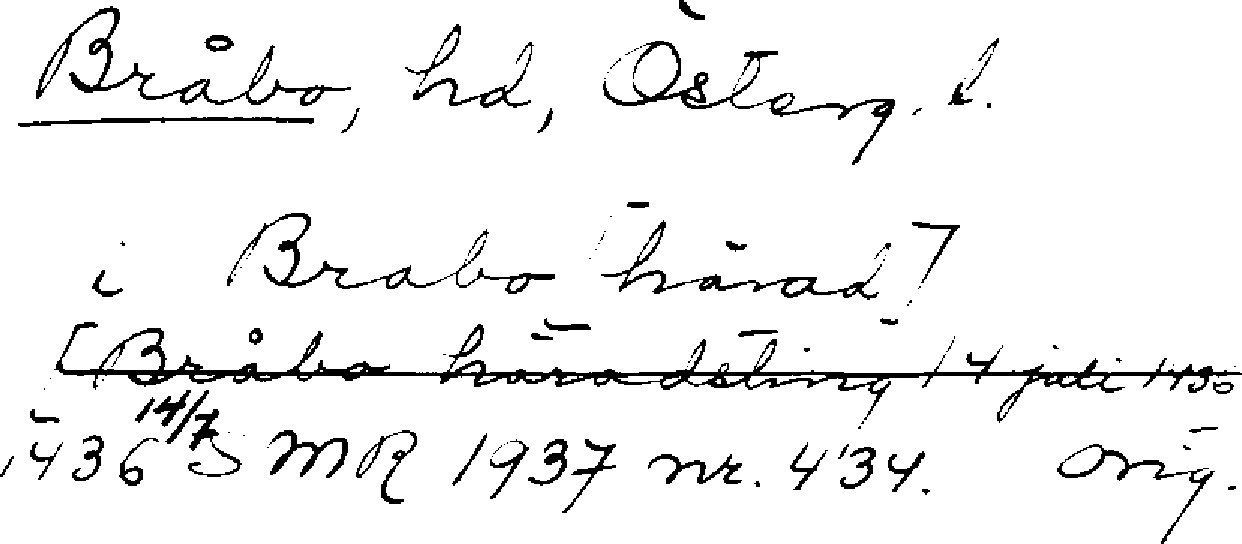 Bråbo, hd, Österg. l.
i Brabo [härad]
[Bråbo häradsting 14 juli 1436
1436 14/7 SMR 1937 nr. 434. orig.